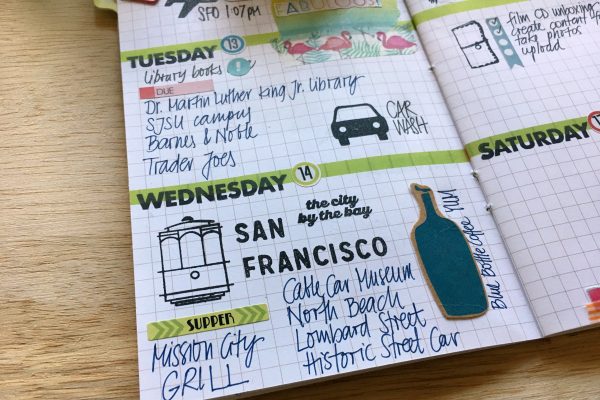 SFO 1:07pm
FABULOUS!
TUESDAY 13
Library books
DUE
Dr. Martin Luther King Jr. Library
SJSU campus
Barnes & Noble
Trader Joes
CAR
WASH
WEDNESDAY 14
the city
by the bay
SAN
FRANCISCO
Cable Car Museum
North Beach
Lombard Street
Historic Street Car
SUPPER
Mission City
GRILL
Blue Bottle Coffee
film CD unboxing
create content
take photos
upload
SATURDAY